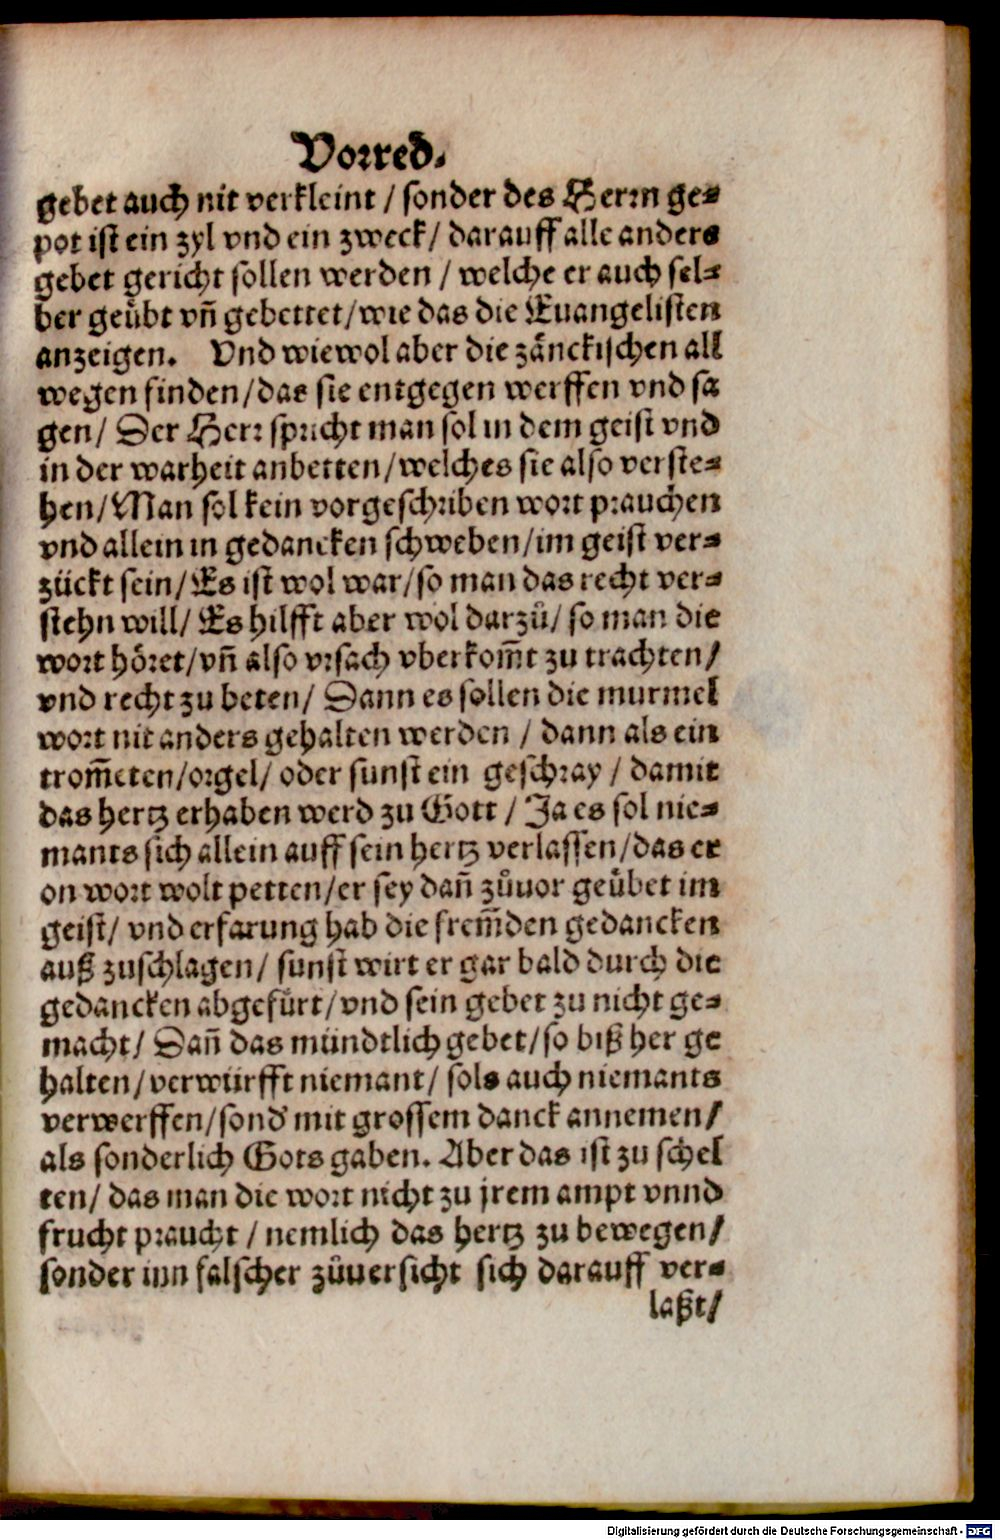 Vorred.
gebet auch nit verkleint / sonder des Herrn ge⸗
pot ist ein zyl vnd ein zweck / darauff alle anders
gebet gericht sollen werden / welche er auch sel⸗
ber geuͤbt vñ gebettet / wie das die Euangelisten
anzeigen. Vnd wiewol aber die zaͤnckischen all
wegen finden / das sie entgegen werffen vnd sa
gen / Der Herr spricht man sol in dem geist vnd
in der warheit anbetten / welches sie also verste⸗
hen / Man sol kein vorgeschriben wort prauchen
vnd allein in gedancken schweben / im geist ver⸗
zückt sein / Es ist wol war / so man das recht ver⸗
stehn will / Es hilfft aber wol darzuͤ / so man die
wort hoͤret / vñ also vrsach vberkom̃t zu trachten /
vnd recht zu beten / Dann es sollen die murmel
wort nit anders gehalten werden / dann als ein
trom̃eten / orgel / oder sunst ein geschray / damit
das hertz erhaben werd zu Gott / Ja es sol nie⸗
mants sich allein auff sein hertz verlassen / das er
on wort wolt petten / er sey dañ zůuor geuͤbet im
geist / vnd erfarung hab die frem̃den gedancken
auß zuschlagen / sunst wirt er gar bald durch die
gedancken abgefuͤrt / vnd sein gebet zu nicht ge⸗
macht / Dañ das mündtlich gebet / so biß her ge
halten / verwürfft niemant / sols auch niemants
verwerffen / sond' mit grossem danck annemen /
als sonderlich Gots gaben. Aber das ist zu schel
ten / das man die wort nicht zu jrem ampt vnnd
frucht praucht / nemlich das hertz zu bewegen /
sonder inn falscher zůuersicht sich darauff ver⸗
laßt /
Digitalisierung gefördert durch die Deutsche Forschungsgemeinschaft - DFG